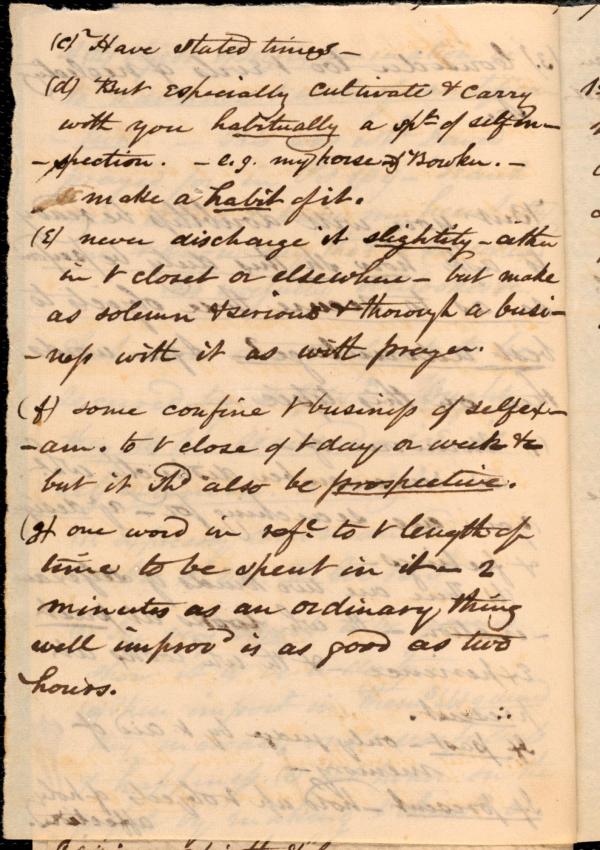 (c) Have stated times –
(d) But especially cultivate & carry
with you habitually a spt of selfin-
-spection. – e.g. my horse & Bowker. –
make a habit of it.
(E) never discharge it slightily – either
in t closet or elsewhere – but make
as solemn & serious & thorough a busi-
-ness with it as with prayer.
(f) some confine t business of selfex-
-am. to t close of t day or week &c
but it shd also be prospective.
(g) one word in refce to t length of
time to be spent in it – 2
minutes as an ordinary thing
well improvd is as good as two
hours.